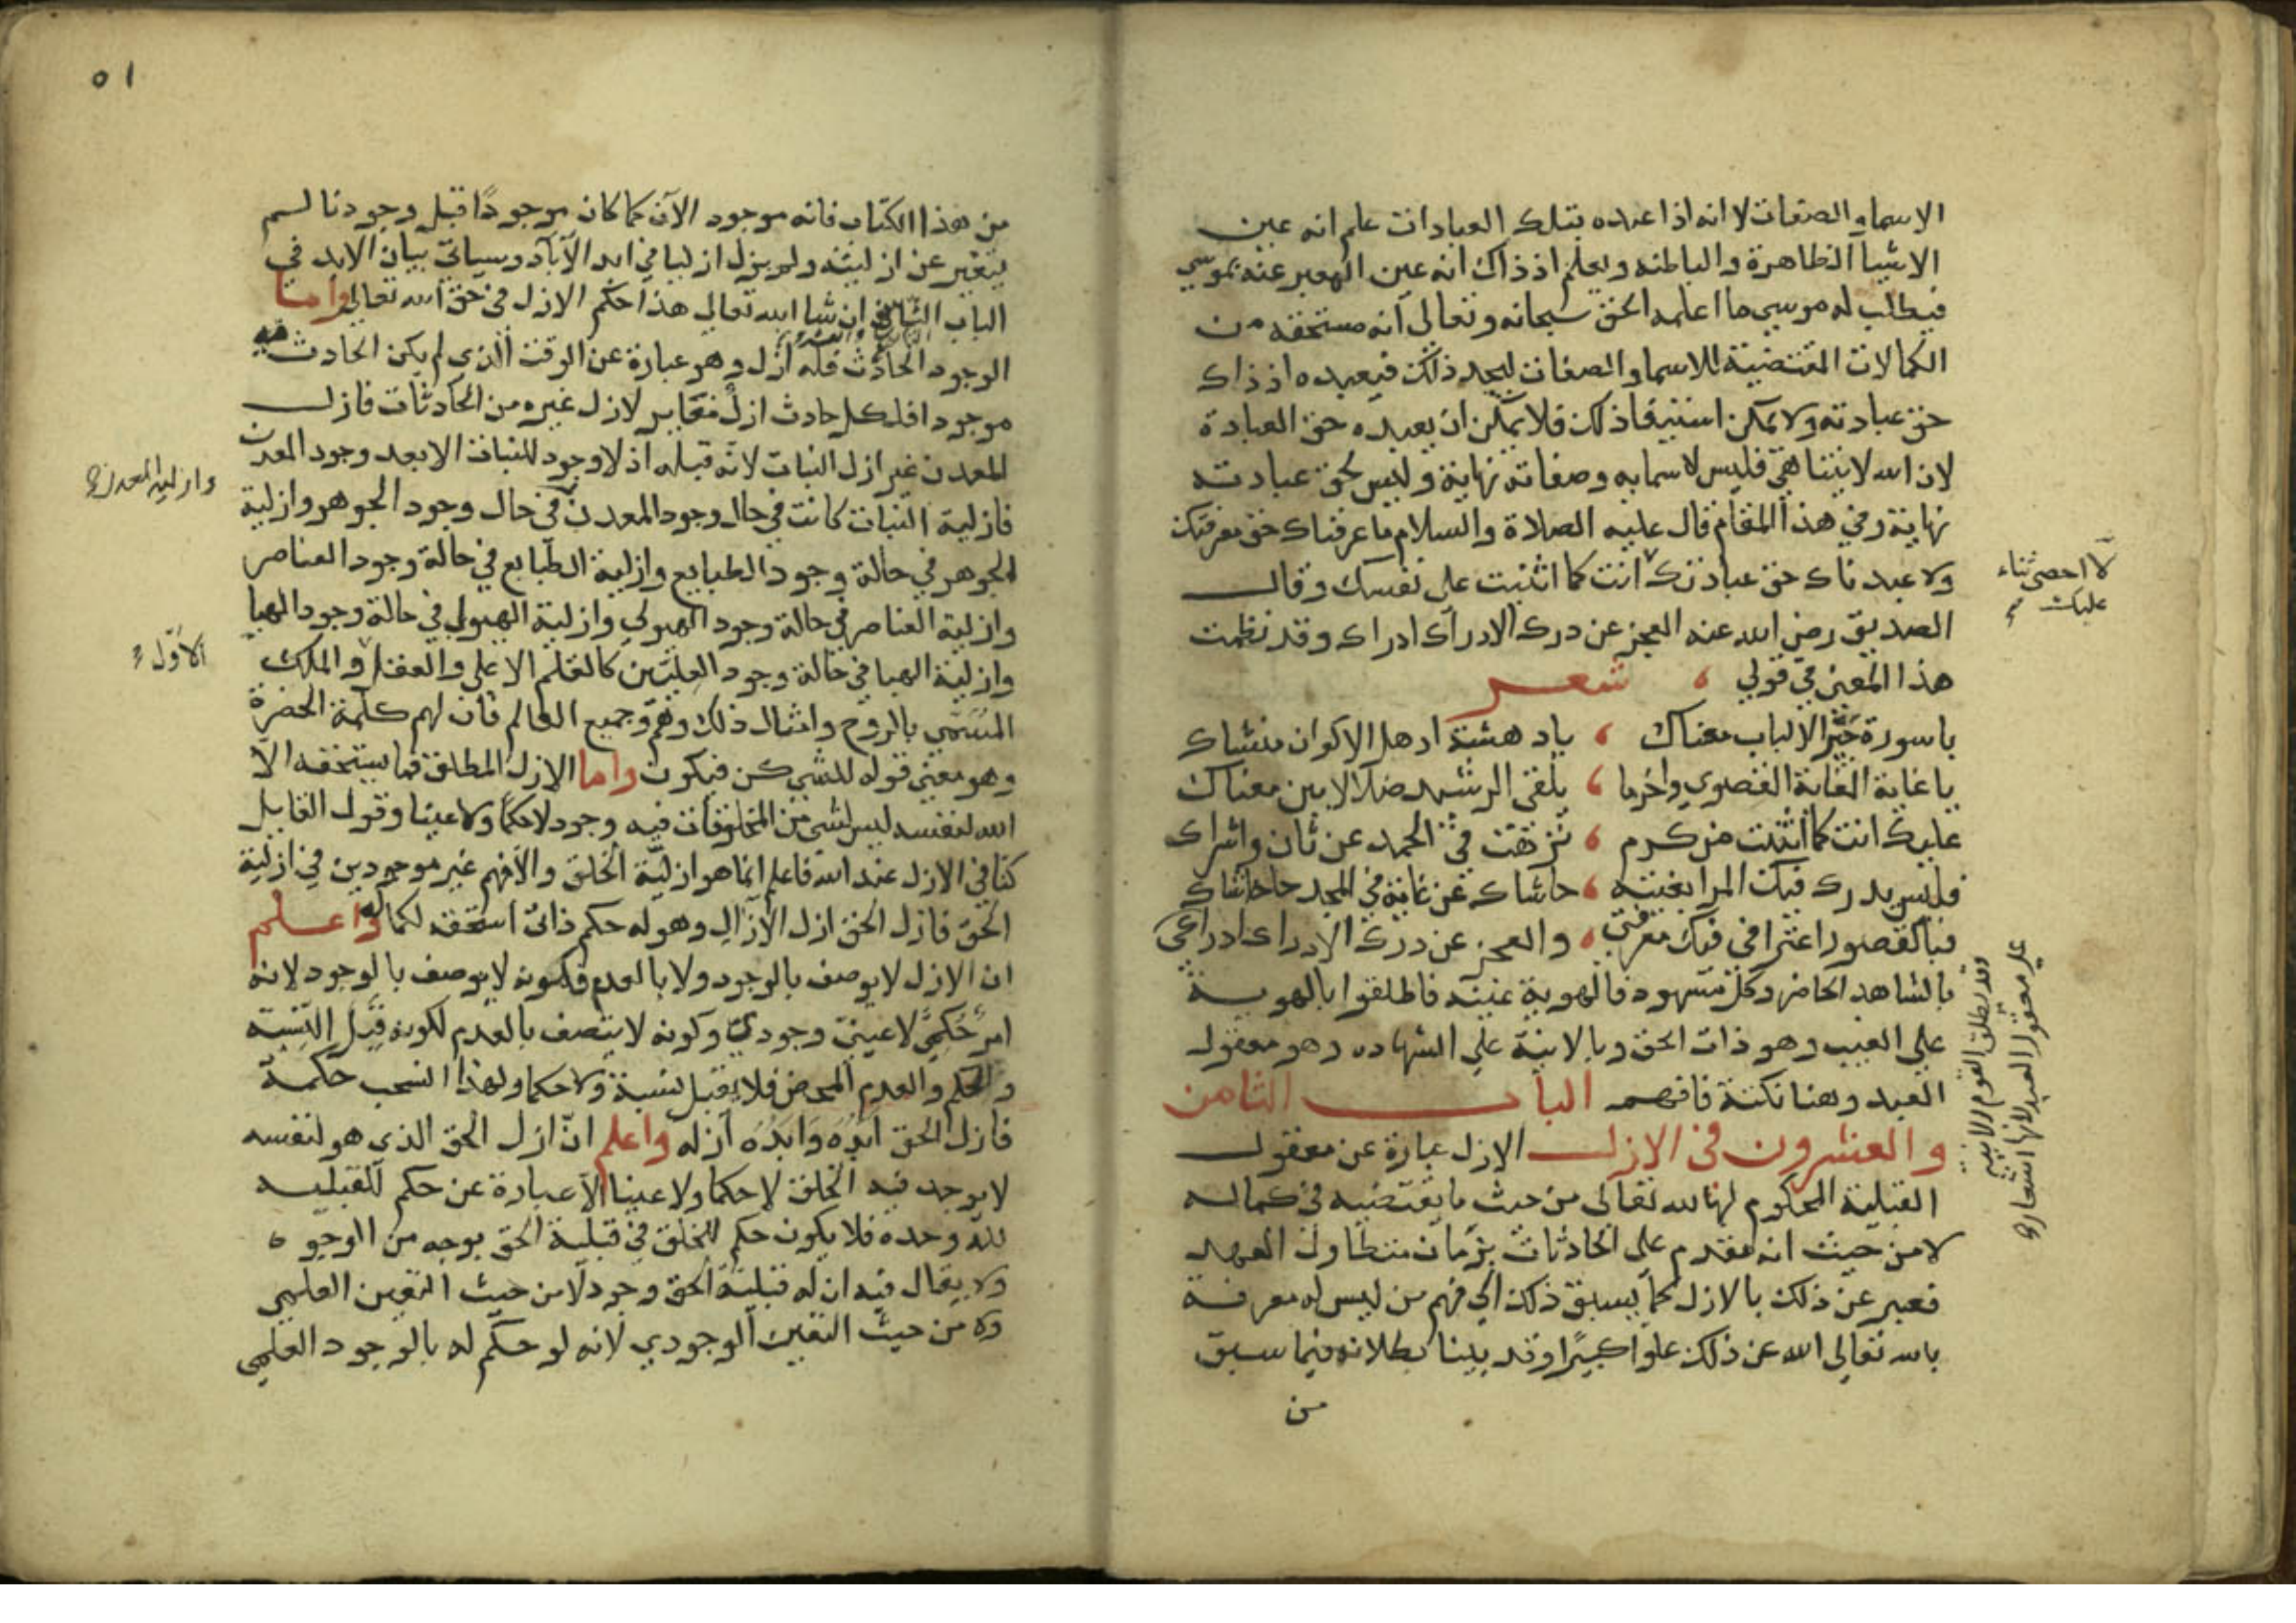 الاسما والصفات لا انه اذا عبده بتلك العبادات علم انه عين
الاشيا الظاهرة والباطنه ويعلم اذ ذاك انه عين المعبر عنه بموسي
فيطلب له موسي ما اعلمه الحق سبحانه وتعالى انه مستحقه من
الكمالات المقتضية للاسما والصفات ليجد ذلك فيعبده اذ ذاك
حق عبادته ولا يمكن استيفا ذلك فلا يمكن ان يعبده حق العبادة
لان الله لا يتناهي فليس لاسمايه وصفاته نهاية وليس لحق عبادته
نهاية وفي هذا المقام قال عليه الصلاة والسلام ما عرفناك حق معرفتك
ولا عبدناك حق عبادتك انت كما اثنيت على نفسك وقال
لا احصى ثناء
عليك
الصديق رضي الله عنه العجز عن درك الادراك ادراك وقد نظمت
هذا المعني في قولي ، شعر
يا سورة حير الالباب معناك ، يا دهشة اذهل الاكوان منشاك
يا غاية الغاية القصوي واخرما ، يلقى الرشيد ضلالا بين معناك
عليك انت كما اثنيت من كرم ، نزهت في الحمد عن ثان واشراك
فليس يدرك فيك المرا بغيته ، حاشاك عن غاية في المجد حاشاك
فبالقصور اعترافي فيك معرفتي ، والعجز عن درك الادراك ادراكي
بالشاهد الحاضر وكل مشهود فالهوية غيبه فاطلقوا بالهوية
على الغيب وهو ذات الحق وبالانية على الشهاده وهو معقول
وقد يطلق القوم الانيه
على معقول العبد لانها اشعار
العبد وهنا نكتة فافهم الباب الثامن
والعشرون في الازل الازل عبارة عن معقول
القبلية المحكوم بها لله تعالى من حيث ما يقتضيه في كماله
لا من حيث انه تقدم على الحادثات بزمان متطاول العهد
فعبر عن ذلك بالازل كما يسبق ذلك الى فهم من ليس له معرفة
بالله تعالى الله عن ذلك علوا كبيرا وقد بينا بطلانه فيما سبق
من
٥١
من هذا الكتاب فانه موجود الآن كما كان موجودا قبل وجودنا لم
يتغير عن ازليته ولم يزل ازليا في ابد الآباد وسياتي بيان الابد في
الباب ان شا الله تعالى هذا حكم الازل في حق الله تعالى واما
الوجود الحادث فله ازل وهو عبارة عن الوقت الذي لم يكن الحادث فيه
موجودا فلكل حادث ازل مغاير لازل غيره من الحادثات فازل
المعدن غير ازل النبات لانه قبله اذ لا وجود للنبات الا بعد وجود المعدن
فازلية النبات كانت في حال وجود المعدن في حال وجود الجوهر وازلية
وازلية المعدن
الجوهر في حالة وجود الطبايع وازلية الطبايع في حالة وجود العناصر
وازلية العناصر في حالة وجود الهيولي وازلية الهيولي في حالة وجود الهبا
وازلية الهبا في حالة وجود العليين كالقلم الاعلى والعقل والملك
الاول
المسمي بالروح وامثال ذلك وهم وجميع العالم فان لهم كلمة الحضرة
وهو معني قوله للشي كن فيكون واما الازل المطلق فما يستحقه الا
الله لنفسه ليس لشي من المخلوقات فيه وجود لا حكما ولا عينا وقول القايل
كنا في الازل عند الله فاعلم انما هو ازلية الخلق والا فهم غير موجودين في ازلية
الحق فازل الحق ازل الآزال وهو له حكم ذاتي استحقه لكماله واعلم
ان الازل لا يوصف بالوجود ولا بالعدم فكونه لا يوصف بالوجود لانه
امر حكمي لا عيني وجودي وكونه لا يتصف بالعدم لكونه قبل النسبة
والحكم والعدم المحض فلا يقبل نسبة ولا حكما ولهذا انسحب حكمه
فازل الحق ابده وابده ازله واعلم ان ازل الحق الذي هو لنفسه
لا يوجد فيه الخلق لا حكما ولا عينا الا عبارة عن حكم القبليه
لله وحده فلا يكون حكم للخلق في قبلية الحق بوجه من الوجوه
ولا يقال فيه ان له قبلية الحق وجود لا من حيث التعين العلمي
ولا من حيث التعين الوجودي لانه لو حكم له بالوجود العلمي